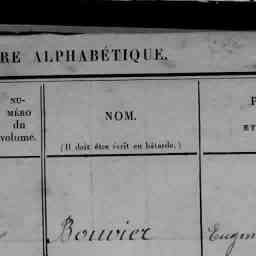 RE ALPHABÉTIQUE.
NU-
MÉRO
du
volume.
NOM.
(Il doit être écrit en bâtarde.)
P
ET
Bouvier
Eugèn